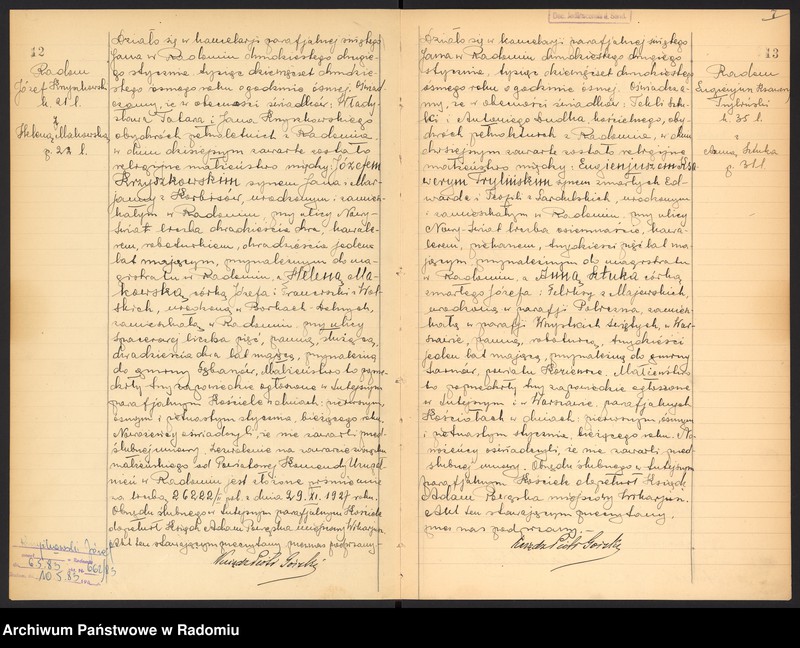 12
Radom
Józef Krzyszkowski
k. 21 l.
i
Helena Makowska
p. 22 l.
Działo się w kancelarji parafjalnej świętego
Jana w Radomiu dwudziestego drugie-
go stycznia, tysiąc dziewięćset dwudzie-
stego ósmego roku o godzinie ósmej. Świad-
czamy, że w obecności świadków: Włady-
sława Tatara i Jana Krzyszkowskiego
obydwóch pełnoletnich z Radomia,
w dniu dzisiejszym zawarte zostało
religijne małżeństwo między: Józefem
Krzyszkowskim synem Jana i Mar-
janny z urodzonym i zamiesz-
kałym w Radomiu, przy ulicy Nowy-
świat liczba dwadzieścia dwa, kawale-
rem, robotnikiem, dwadzieścia jeden
lat mającym, przynależnym do ma-
gistratu w Radomiu, a Heleną Ma-
kowską córką Józefa i Franciszki z
urodzoną w Borkach
zamieszkałą w Radomiu, przy ulicy
Spacerowej liczba pięć, panną, służącą,
dwadzieścia dwa lat mającą, przynależną
do gminy Małżeństwo to poprze-
dziły trzy zapowiedzie ogłoszone w tutejszym
parafjalnym Kościele w dniach: pierwszym,
ósmym i piętnastym stycznia, bieżącego roku.
Nowożeńcy oświadczyli, że nie zawarli przed-
ślubnej umowy. Zezwolenie na zawarcie związku
małżeńskiego od Powiatowej Komendy Uzupeł-
nień w Radomiu jest złożone
za liczbą 26222 z dnia 29.XI.1927 roku.
Obrzędu ślubnego w tutejszym parafjalnym Kościele
dopełnił Ksiądz Adam miejscowy Wikarjusz.
Akt ten stawającym przeczytany, przez nas podpisany.
Ksiądz Piotr Górski
6.5.83
662/83
10.5.83
7
13
Radom
k. 35 l.
i
Anna Sztuka
p. 31 l.
Działo się w kancelarji parafjalnej świętego
Jana w Radomiu dwudziestego drugiego
stycznia, tysiąc dziewięćset dwudziestego
ósmego roku o godzinie ósmej. Świadcza-
my, że w obecności świadków:
i Antoniego Dudka, kościelnego, oby-
dwóch pełnoletnich z Radomia, w dniu
dzisiejszym zawarte zostało religijne
małżeństwo między: Eugienjuszem Ksa-
werym synem zmarłych Ed-
warda i Teofili z urodzonym
i zamieszkałym w Radomiu, przy ulicy
Nowy-Świat liczba osiemnaście, kawa-
lerem, piekarzem, trzydzieści pięć lat ma-
jącym, przynależnym do magistratu
w Radomiu, a Anną Sztuka córką
zmarłego Józefa i Feliksy z Majewskich,
urodzoną w parafji zamiesz-
kałą w parafji Wszystkich Świętych, w War-
szawie, panną, robotnicą, trzydzieści
jeden lat mającą, przynależną do gminy
powiatu Kozienice. Małżeństwo
to poprzedziły trzy zapowiedzie ogłoszone
w tutejszym i w Warszawie, parafjalnych
Kościołach w dniach: pierwszym, ósmym
i piętnastym stycznia, bieżącego roku. No-
wożeńcy oświadczyli, że nie zawarli przed-
ślubnej umowy. Obrzędu ślubnego w tutejszym
parafjalnym Kościele dopełnił Ksiądz
Adam miejscowy Wikarjusz.
Akt ten stawającym przeczytany,
przez nas podpisany.
Ksiądz Piotr Górski
Archiwum Państwowe w Radomiu